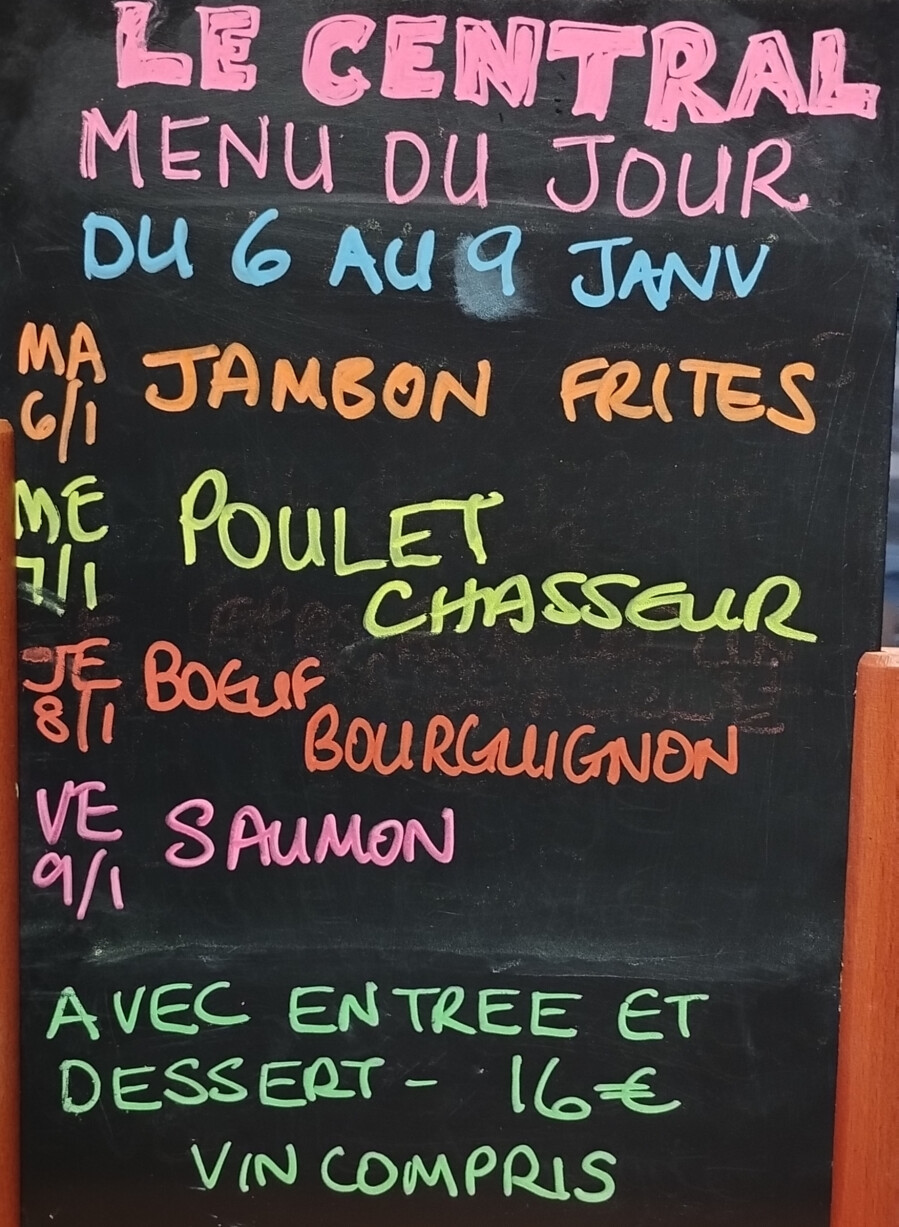 LE CENTRAL
MENU DU JOUR
DU 6 AU 9 JANV
MA 6/1 JAMBON FRITES
ME 7/1 POULET
CHASSEUR
JE 8/1 BOEUF
BOURGUIGNON
VE 9/1 SAUMON
AVEC ENTREE ET
DESSERT - 16€
VIN COMPRIS